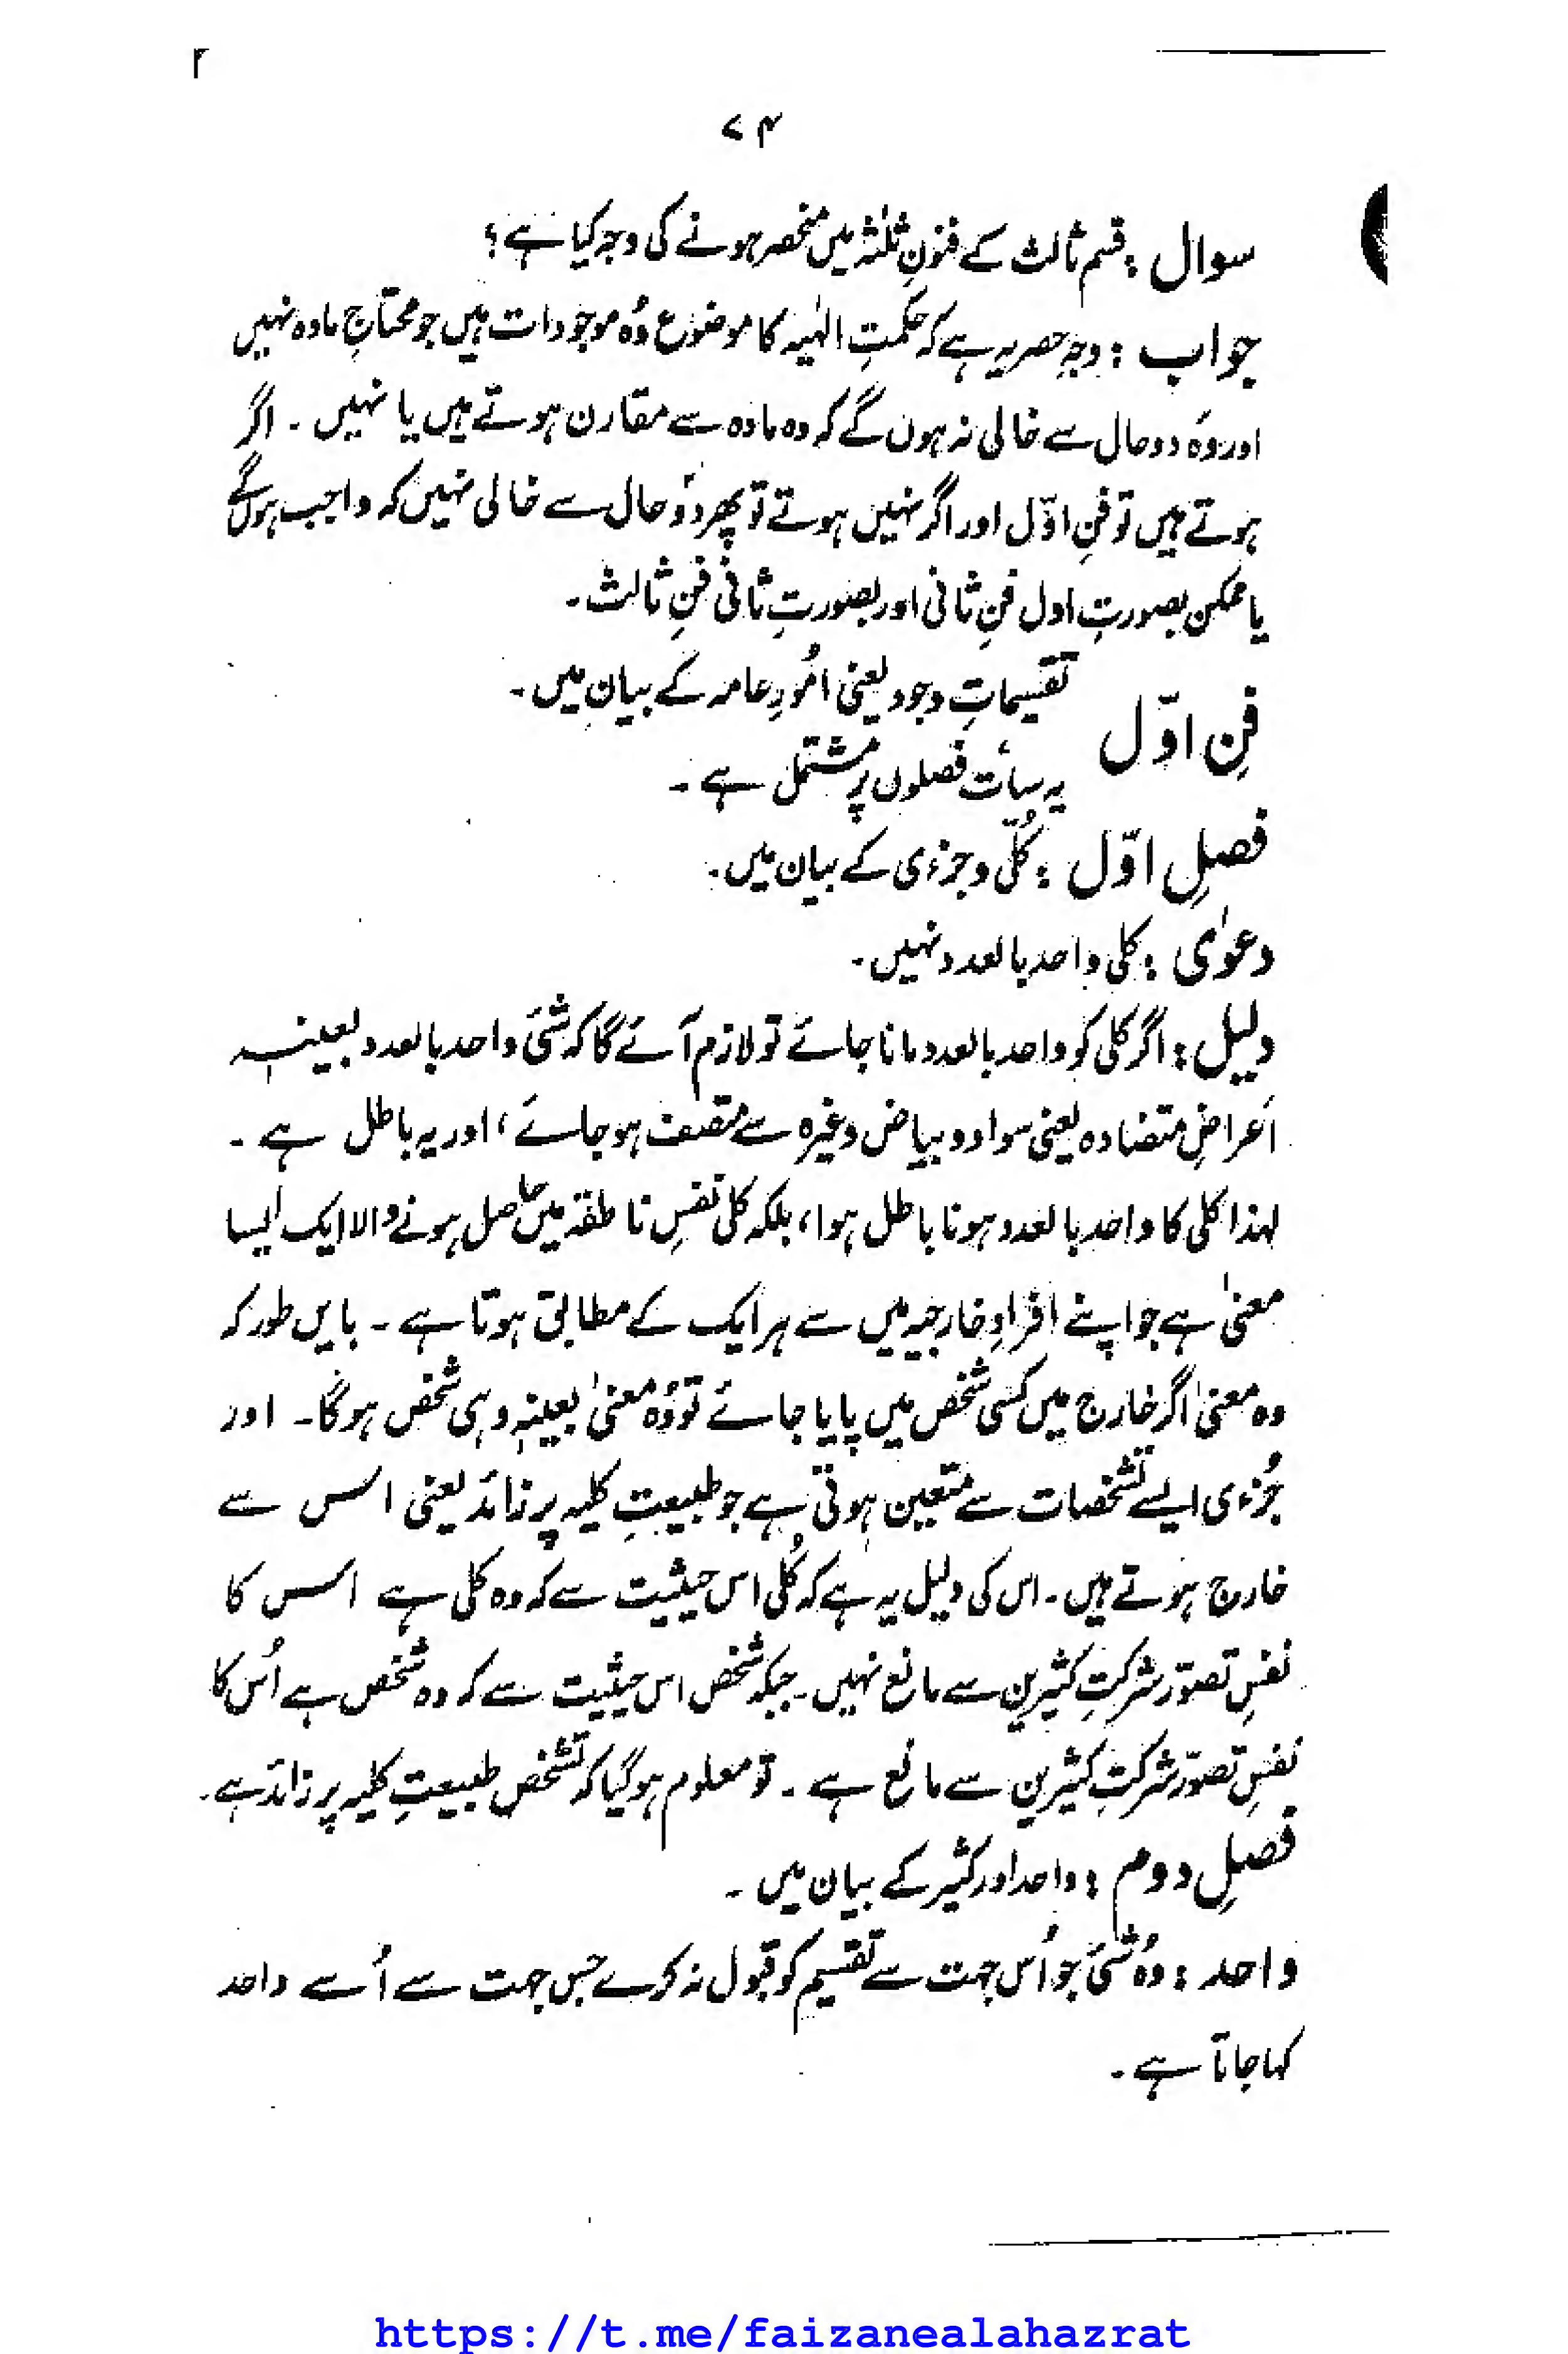 ۷۴
سوال : قسم ثالث کے فنونِ ثلٰثہ میں منحصر ہونے کی وجہ کیا ہے؟
جواب : وجہِ حصر یہ ہے کہ حکمتِ الٰہیہ کا موضوع وُہ موجودات ہیں جو محتاجِ مادہ نہیں
اور وُہ دو حال سے خالی نہ ہوں گے کہ وہ مادہ سے مقارن ہوتے ہیں یا نہیں ۔ اگر
ہوتے ہیں تو فنِ اوّل اور اگر نہیں ہوتے تو پھر دوُ حال سے خالی نہیں کہ واجب ہوں گے
یا ممکن بصورتِ اول فنِ ثانی اور بصورتِ ثانی فنِ ثالث ۔
فنِ اوّل تقسیماتِ وجود یعنی اُمُورِ عامہ کے بیان میں ۔
یہ سات فصلوں پر مشتمل ہے ۔
فصلِ اوّل : کُلّی و جزءی کے بیان میں ۔
دعوٰی : کلی واحد بالعدد نہیں ۔
دلیل : اگر کلی کو واحد بالعدد مانا جائے تو لازم آئے گا کہ شَیٔ واحد بالعدد بعینہٖ
اَعراضِ متضادہ یعنی سواد و بیاض وغیرہ سے متصف ہو جائے ، اور یہ باطل ہے ۔
لہذا کلی کا واحد بالعدد ہونا باطل ہوا ، بلکہ کلی نفسِ ناطقہ میں حاصل ہونے والا ایک ایسا
معنیٰ ہے جو اپنے افرادِ خارجیہ میں سے ہر ایک کے مطابق ہوتا ہے ۔ بایں طور کہ
وہ معنیٰ اگر خارج میں کسی شخص میں پایا جائے تو وُہ معنیٰ بعینہٖ وہی شخص ہوگا ۔ اور
جُزءی ایسے تشخصات سے متعین ہوتی ہے جو طبیعتِ کلیہ پر زائد یعنی اس سے
خارج ہوتے ہیں ۔ اس کی دلیل یہ ہے کہ کُلی اس حیثیت سے کہ وہ کلی ہے اس کا
نفسِ تصوّر شرکتِ کثیرین سے مانع نہیں ۔ جبکہ شخص اس حیثیت سے کہ وہ شخص ہے اُس کا
نفسِ تصوّر شرکتِ کثیرین سے مانع ہے ۔ تو معلوم ہوگیا کہ تشخص طبیعتِ کلیہ پر زائد ہے ۔
فصلِ دوم : واحد اور کثیر کے بیان میں ۔
واحد : وُہ شَیٔ جو اُس جہت سے تقسیم کو قبول نہ کرے جس جہت سے اُسے واحد
کہا جاتا ہے ۔
https://t.me/faizanealahazrat